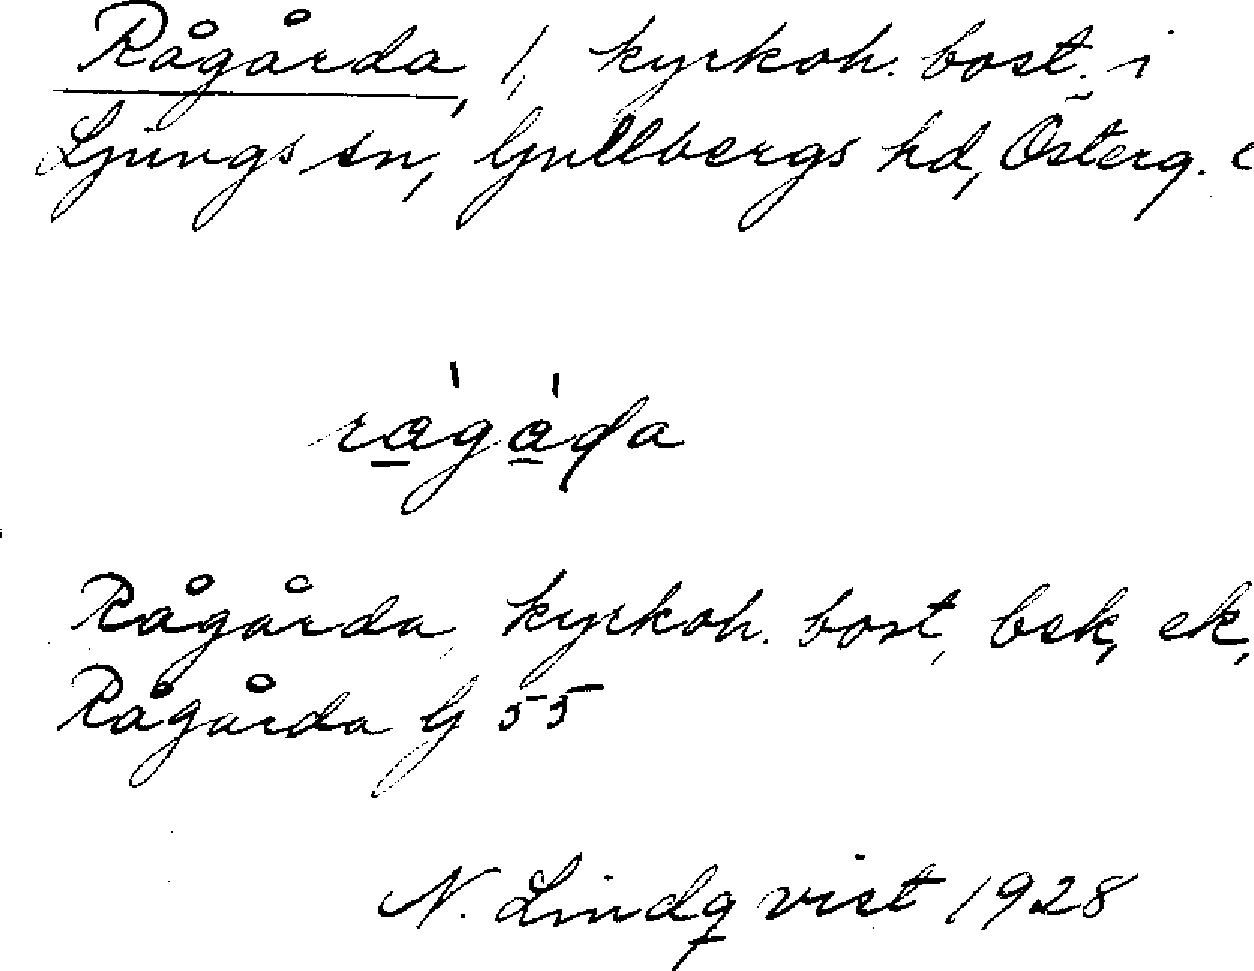 Rågårda, 1, kyrkoh. bost. i
Ljungs sn, Gullbergs hd, Österg.
rågåda
Rågårda, kyrkoh. bost, bek, ek,
Rågårda G 55
N. Lindqvist 1928